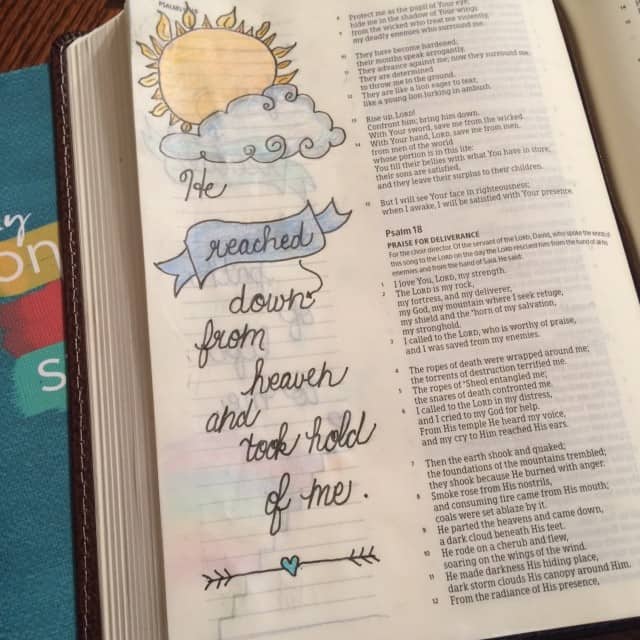 He
reached
down
from
heaven
and
took hold
of me.
Protect me as the pupil of Your eye;
hide me in the shadow of Your wings
from the wicked who treat me violently,
my deadly enemies who surround me.
10 They have become hardened;
their mouths speak arrogantly.
11 They advance against me; now they surround me.
They are determined
to throw me to the ground.
12 They are like a lion eager to tear,
like a young lion lurking in ambush.
13 Rise up, LORD!
Confront him; bring him down.
With Your sword, save me from the wicked.
14 With Your hand, LORD, save me from men,
from men of the world
whose portion is in this life:
You fill their bellies with what You have in store,
their sons are satisfied,
and they leave their surplus to their children.
15 But I will see Your face in righteousness;
when I awake, I will be satisfied with Your presence.
Psalm 18
PRAISE FOR DELIVERANCE
For the choir director. Of the servant of the LORD, David, who spoke the words of
this song to the LORD on the day the LORD rescued him from the hand of all his
enemies and from the hand of Saul. He said:
1 I love You, LORD, my strength.
2 The LORD is my rock,
my fortress, and my deliverer,
my God, my mountain where I seek refuge,
my shield and the horn of my salvation,
my stronghold.
3 I called to the LORD, who is worthy of praise,
and I was saved from my enemies.
4 The ropes of death were wrapped around me;
the torrents of destruction terrified me.
5 The ropes of Sheol entangled me;
the snares of death confronted me.
6 I called to the LORD in my distress,
and I cried to my God for help.
From His temple He heard my voice,
and my cry to Him reached His ears.
7 Then the earth shook and quaked;
the foundations of the mountains trembled;
they shook because He burned with anger.
8 Smoke rose from His nostrils,
and consuming fire came from His mouth;
coals were set ablaze by it.
9 He parted the heavens and came down,
a dark cloud beneath His feet.
10 He rode on a cherub and flew,
soaring on the wings of the wind.
11 He made darkness His hiding place,
dark storm clouds His canopy around Him.
12 From the radiance of His presence,